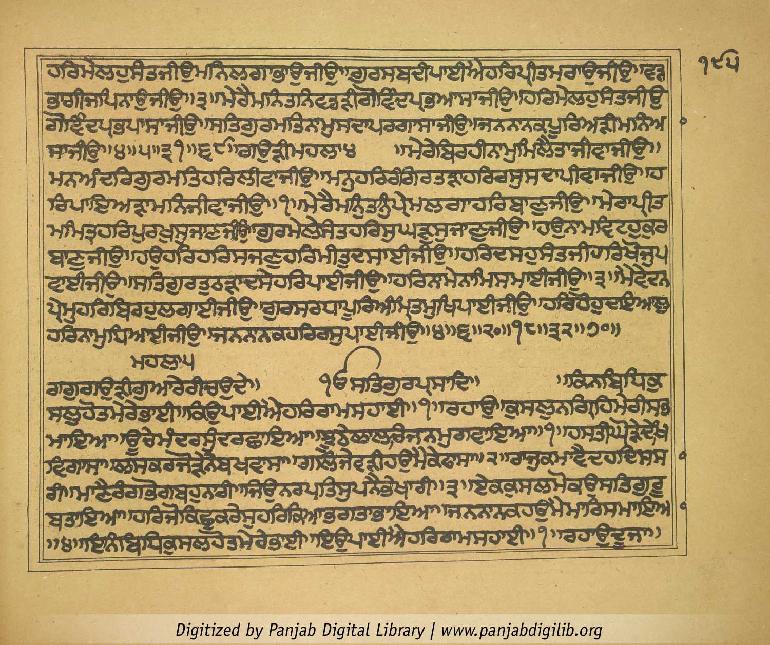 ਹਰਿਮੇਲਹੁਸੰਤਜੀਉਮਨਿਲਗਾਭਾਉਜੀਉ॥ਗੁਰਸਬਦੀਪਾਈਐਹਰਿਪ੍ਰੀਤਮਰਾਉਜੀਉ॥ਵਡ
ਭਾਗੀਜਪਿਨਾਉਜੀਉ॥੩॥ਮੇਰੈਮਨਿਤਨਿਵਡੜੀਗੋਵਿੰਦਪ੍ਰਭਆਸਾਜੀਉ॥ਹਰਿਮੇਲਹੁਸੰਤਜੀਉ
ਗੋਵਿੰਦਪ੍ਰਭਪਾਸਾਜੀਉ॥ਸਤਿਗੁਰਮਤਿਨਾਮੁਸਦਾਪਰਗਾਸਾਜੀਉ॥ਜਨਨਾਨਕਪੂਰਿਅੜੀਮਨਿਆ
ਸਾਜੀਉ॥੪॥੫॥੩੧॥੬੯॥ਗਉੜੀਮਹਲਾ੪ ॥ਮੇਰਾਬਿਰਹੀਨਾਮੁਮਿਲੈਤਾਜੀਵਾਜੀਉ॥
ਮਨਅੰਦਰਿਗੁਰਮਤਿਹਰਿਲੀਵਾਜੀਉ॥ਮਨੁਹਰਿਰੰਗਿਰਤੜਾਹਰਿਰਸੁਸਦਾਪੀਵਾਜੀਉ॥ਹ
ਰਿਪਾਇਅੜਾਮਨਿਜੀਵਾਜੀਉ॥੧॥ਮੇਰੈਮਨਿਤਨਿਪ੍ਰੇਮੁਲਗਾਹਰਿਬਾਣੁਜੀਉ॥ਮੇਰਾਪ੍ਰੀਤ
ਮੁਮਿਤ੍ਰੁਹਰਿਪੁਰਖੁਸੁਜਾਣੁਜੀਉ॥ਗੁਰੁਮੇਲੇਸੰਤਹਰਿਸੁਘੜੁਸੁਜਾਣੁਜੀਉ॥ਹਉਨਾਮਵਿਟਹੁਕੁਰ
ਬਾਣੁਜੀਉ॥ਹਉਹਰਿਹਰਿਸਜਣੁਹਰਿਮੀਤੁਦਸਾਈਜੀਉ॥ਹਰਿਦਸਹੁਸੰਤਜੀਹਰਿਖੋਜੁਪ
ਵਾਈਜੀਉ॥ਸਤਿਗੁਰੁਤੁਠੜਾਦਸੇਹਰਿਪਾਈਜੀਉ॥ਹਰਿਨਾਮੇਨਾਮਿਸਮਾਈਜੀਉ॥੩॥ਮੈਵੇਦਨ
ਪ੍ਰੇਮੁਹਰਿਬਿਰਹੁਲਗਾਈਜੀਉ॥ਗੁਰਸਰਧਾਪੂਰਿਅੰਮ੍ਰਿਤੁਮੁਖਿਪਾਈਜੀਉ॥ਹਰਿਹੋਹੁਦਇਆਲੁ
ਹਰਿਨਾਮੁਧਿਆਈਜੀਉ॥ਜਨਨਾਨਕਹਰਿਰਸੁਪਾਈਜੀਉ॥੪॥੬॥੨੦॥੧੮॥੩੨॥੭੦॥
ਮਹਲਾ੫
ਰਾਗੁਗਉੜੀਗੁਆਰੇਰੀਚਉਪਦੇ॥ ੴਸਤਿਗੁਰਪ੍ਰਸਾਦਿ॥ ॥ਕਿਨਬਿਧਿਕੁ
ਸਲੁਹੋਤਮੇਰੇਭਾਈ॥ਕਿਉਪਾਈਐਹਰਿਰਾਮਸਹਾਈ॥੧॥ਰਹਾਉ॥ਕੁਸਲੁਨਗ੍ਰਿਹਿਮੇਰੀਸਭ
ਮਾਇਆ॥ਊਚੇਮੰਦਰਸੁੰਦਰਛਾਇਆ॥ਝੂਠੇਲਾਲਚਿਜਨਮੁਗਵਾਇਆ॥੧॥ਹਸਤੀਘੋੜੇਦੇਖਿ
ਵਿਗਾਸਾ॥ਲਸਕਰਜੋੜੇਨੇਬਖਵਾਸਾ॥ਗਲਿਜੇਵੜੀਹਉਮੈਕੇਫਾਸਾ॥੨॥ਰਾਜੁਕਮਾਵੈਦਹਦਿਸਸਾ
ਰੀ॥ਮਾਣੈਰੰਗਭੋਗਬਹੁਨਾਰੀ॥ਜਿਉਨਰਪਤਿਸੁਪਨੈਭੇਖਾਰੀ॥੩॥ਏਕੁਕੁਸਲੁਮੋਕਉਸਤਿਗੁਰੂ
ਬਤਾਇਆ॥ਹਰਿਜੋਕਿਛੁਕਰੇਸੁਹਰਿਕਿਆਭਗਤਾਭਾਇਆ॥ਜਨਨਾਨਕਹਉਮੈਮਾਰਿਸਮਾਇਆ
॥੪॥ਇਨਿਬਿਧਿਕੁਸਲਹੋਤਮੇਰੇਭਾਈ॥ਇਉਪਾਈਐਹਰਿਰਾਮਸਹਾਈ॥੧॥ਰਹਾਉਦੂਜਾ॥
੧੯੫
Digitized by Panjab Digital Library | www.panjabdigilib.org